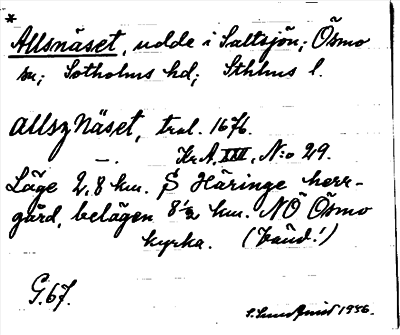 *
Allsnäset, udde i Saltsjön; Ösmo
sn; Sotholms hd; Sthlms l.
allszNäset, trol. 1676.
Kr.A, XXX, N:o 29.
Läge 2,8 km. S Häringe herr-
gård, belägen 8 1/2 km. NÖ Ösmo
kyrka.
G.67.
S. Sundquist 1936.